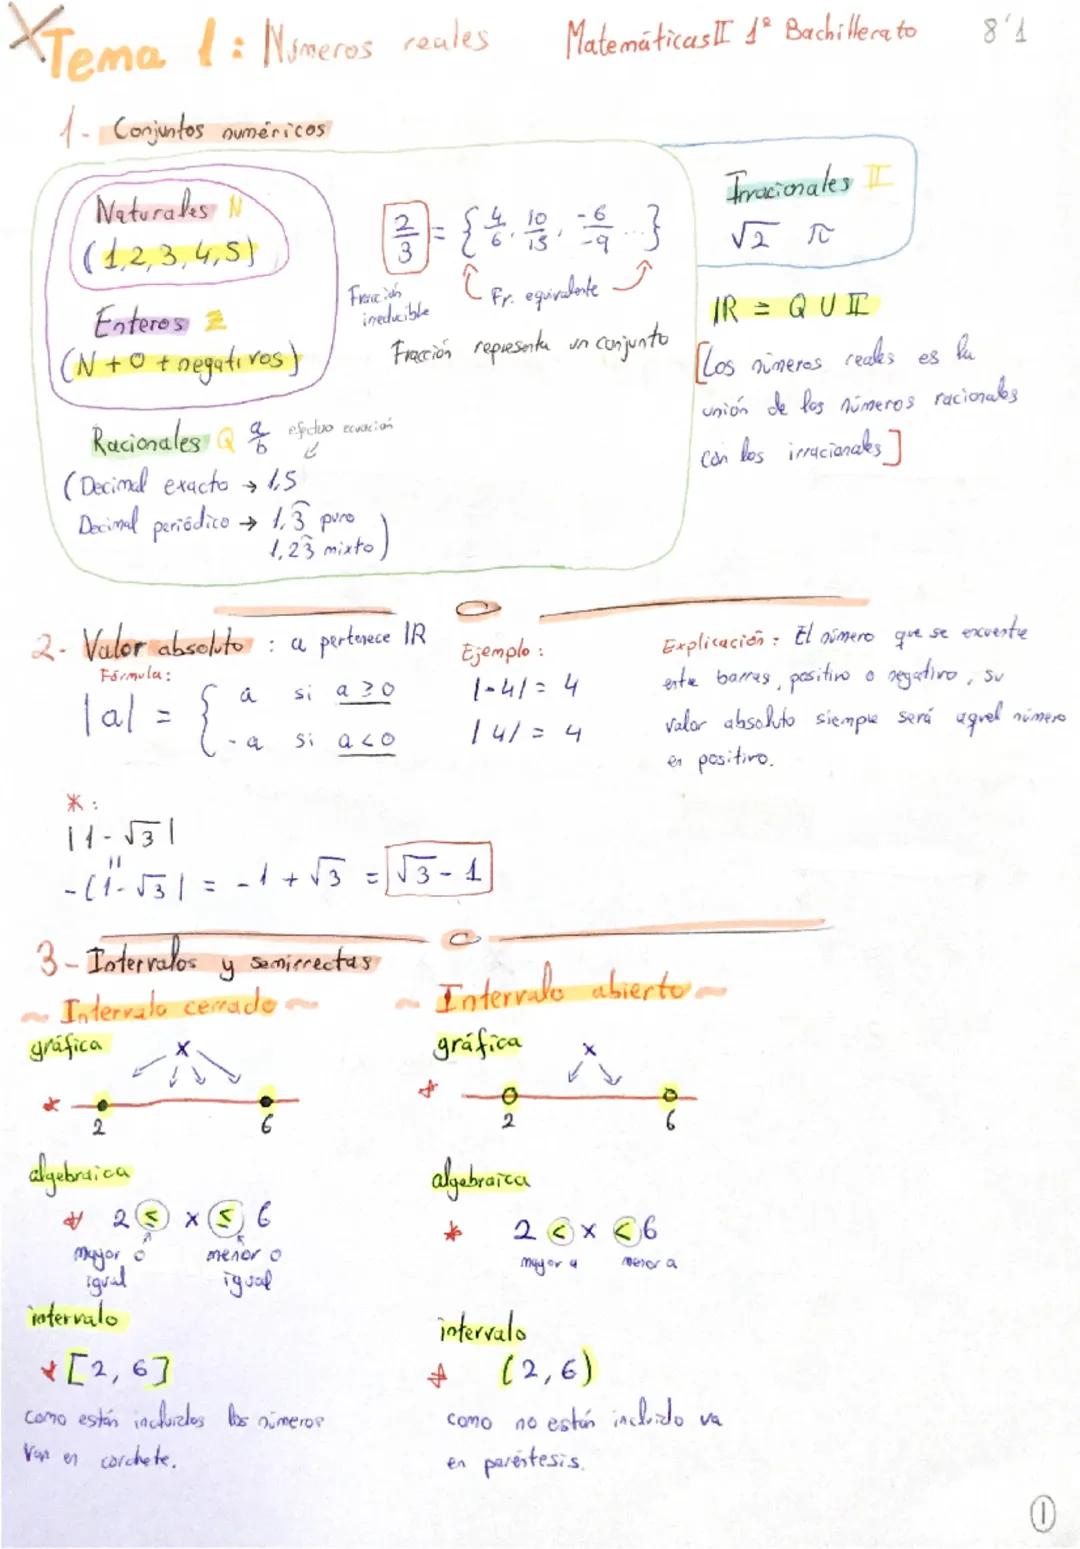 Tema 1: Números reales Matemáticas II 1º Bachillerato 8'1
1- Conjuntos numéricos
Naturales N
(1,2,3,4,5)
Enteros Z
(N + 0 + negativos)
2/3 = { 4/6, 10/15, -6/-9 ...}
Fracción irreducible
Fr. equivalente
Fracción representa un conjunto
Racionales Q a/b efectuo ecuación
(Decimal exacto → 1,5
Decimal periódico → 1,3 puro
1,23 mixto)
Irracionales II
√2 π
IR = Q U II
[Los números reales es la
unión de los números racionales
con los irracionales]
2- Valor absoluto : a pertenece IR
Fórmula:
|a| = { a si a ≥ 0
-a si a < 0
Ejemplo:
|-4| = 4
|4| = 4
Explicación: El número que se encuentre
entre barras, positivo o negativo, su
valor absoluto siempre será aquel número
en positivo.
*:
|1-√3|
"
-(1-√3| = -1+√3 = √3-1
3- Intervalos y semirrectas
~ Intervalo cerrado ~
gráfica
x
2 6
algebraica
* 2 ≤ x ≤ 6
mayor o igual
menor o igual
intervalo
* [2, 6]
como están incluidos los números
van en corchete.
~ Intervalo abierto ~
gráfica
x
*
2 6
algebraica
* 2 < x < 6
mayor a menor a
intervalo
* (2,6)
como no están incluido va
en paréntesis.
1